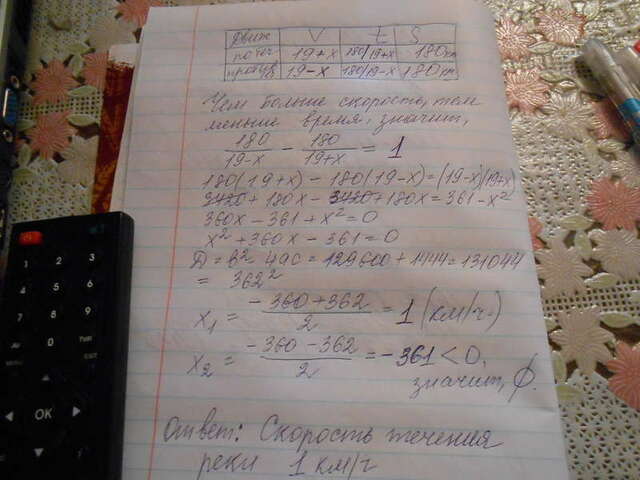 Движ V t S
по теч 19+x 180/19+x 180км
против 19-x 180/19-x 180км
Чем больше скорость, тем
меньше время, значит,
180/19-x - 180/19+x = 1
180(19+x) - 180(19-x) = (19-x)(19+x)
3420 + 180x - 3420 + 180x = 361 - x²
360x - 361 + x² = 0
x² + 360x - 361 = 0
D = b² 4ac = 129600 + 1444 = 131044
= 362²
x₁ = -360+362/2 = 1 (км/ч)
x₂ = -360-362/2 = -361 < 0,
значит, ∅.
Ответ: Скорость течения
реки 1 км/ч
1 2 3
4 5 6
7 8 9
AV 0
MENU EXIT
OK